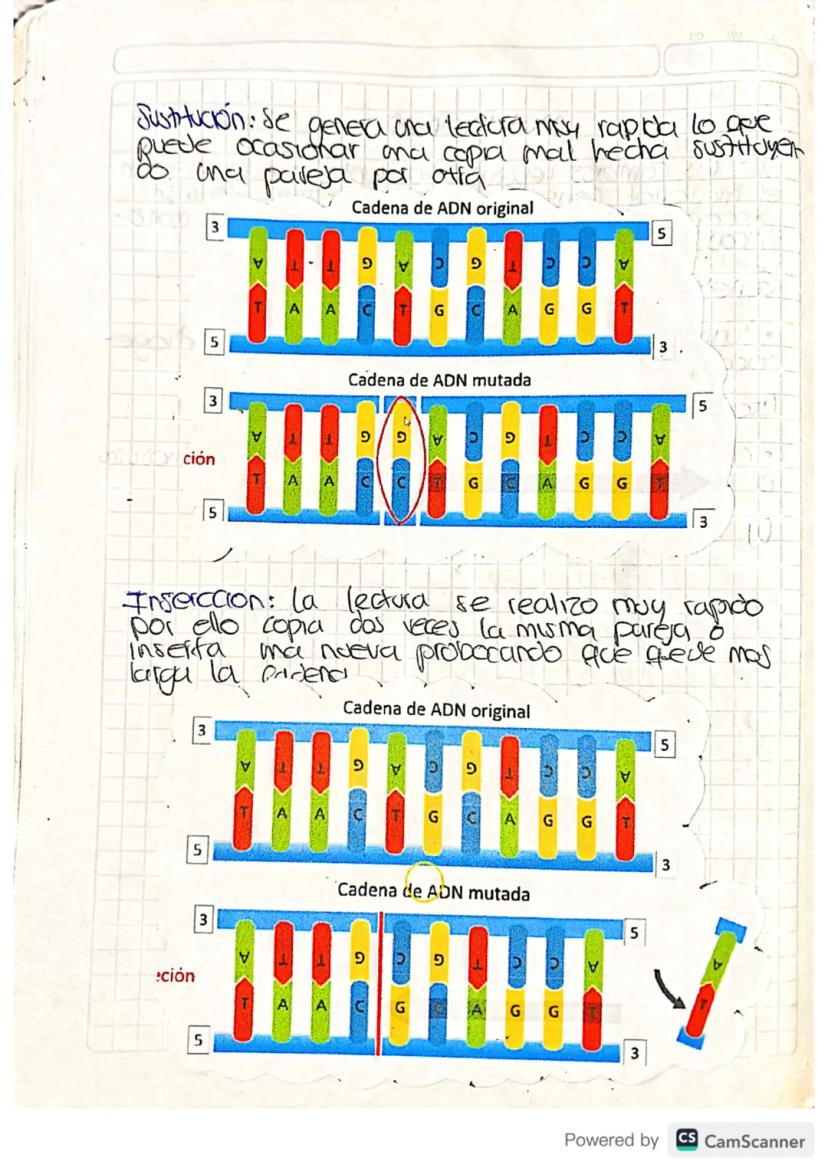 Sustitución: Se genera una lectura muy rapida lo que
puede ocasionar una copia mal hecha sustituyen
do una pareja por otra
Cadena de ADN original
3 5
A T T G A C G T C C A
T A A C T G C A G G T
5 3
Cadena de ADN mutada
3 5
A T T G G A C G T C C A
ción
T A A C C T G C A G G T
5 3
Inserccion: la lectura se realizo muy rapido
por ello copia dos veces la misma pareja o
inserta una nueva probocando que quede mas
larga la cadena
Cadena de ADN original
3 5
A T T G A C G T C C A
T A A C T G C A G G T
5 3
Cadena de ADN mutada
3 5
A T T G C G T C C A A
ción
T A A C G C A G G T T
5 3
Powered by CS CamScanner